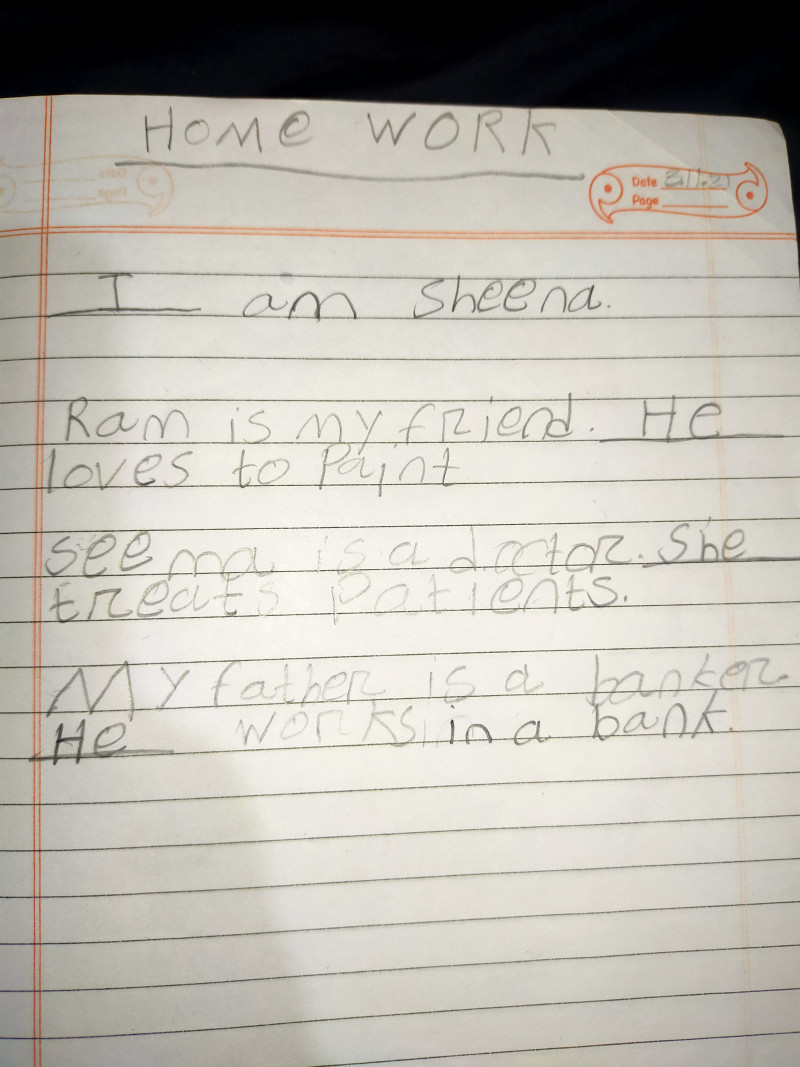 HOMe WORK
Date 3.11.21
Page
I am Sheena.
Ram is my friend. He
loves to Paint
seema is a doctor. She
treats Patients.
My father is a banker.
He works in a bank.